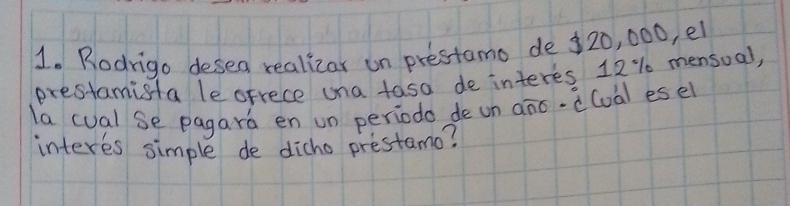 1. Rodrigo desea realizar un préstamo de $20,000, el
prestamista le ofrece una tasa de interés 12% mensual,
la cual se pagará en un periodo de un año. ¿Cuál es el
interés simple de dicho préstamo?